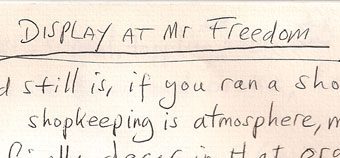 DISPLAY AT Mr Freedom
d still is, if you ran a sho
shopkeeping is atmosphere, m
in that